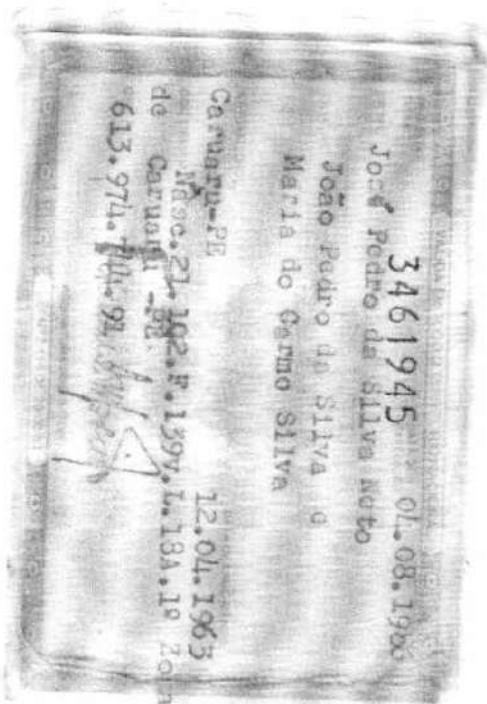 3461945 04.08.19
José Pedro da Silva Neto
João Pedro da Silva e
Maria do Carmo Silva
Caruaru-PE 12.04.1963
Nasc.21.102.F.139v.L.18A.1º Zona
de Caruaru -PE
613.974.